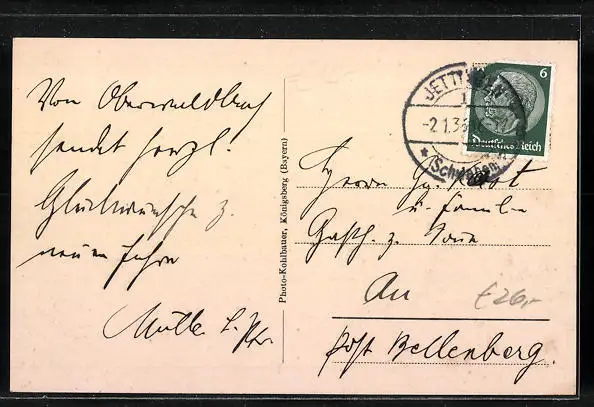 Von Oberwaldbach
sendet herzl.
Glückwünsche z.
neuen Jahre
Photo-Kohlbauer, Königsberg (Bayern)
JETTINGEN
-2.1.3
(Schwaben)
6
Deutsches Reich
Herrn
u. Familie
Gasth. z.
An
€26,-
Post Bellenberg.